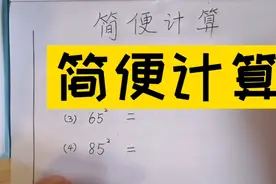 简便计算
简便计算
(3) 65² =
(4) 85² =